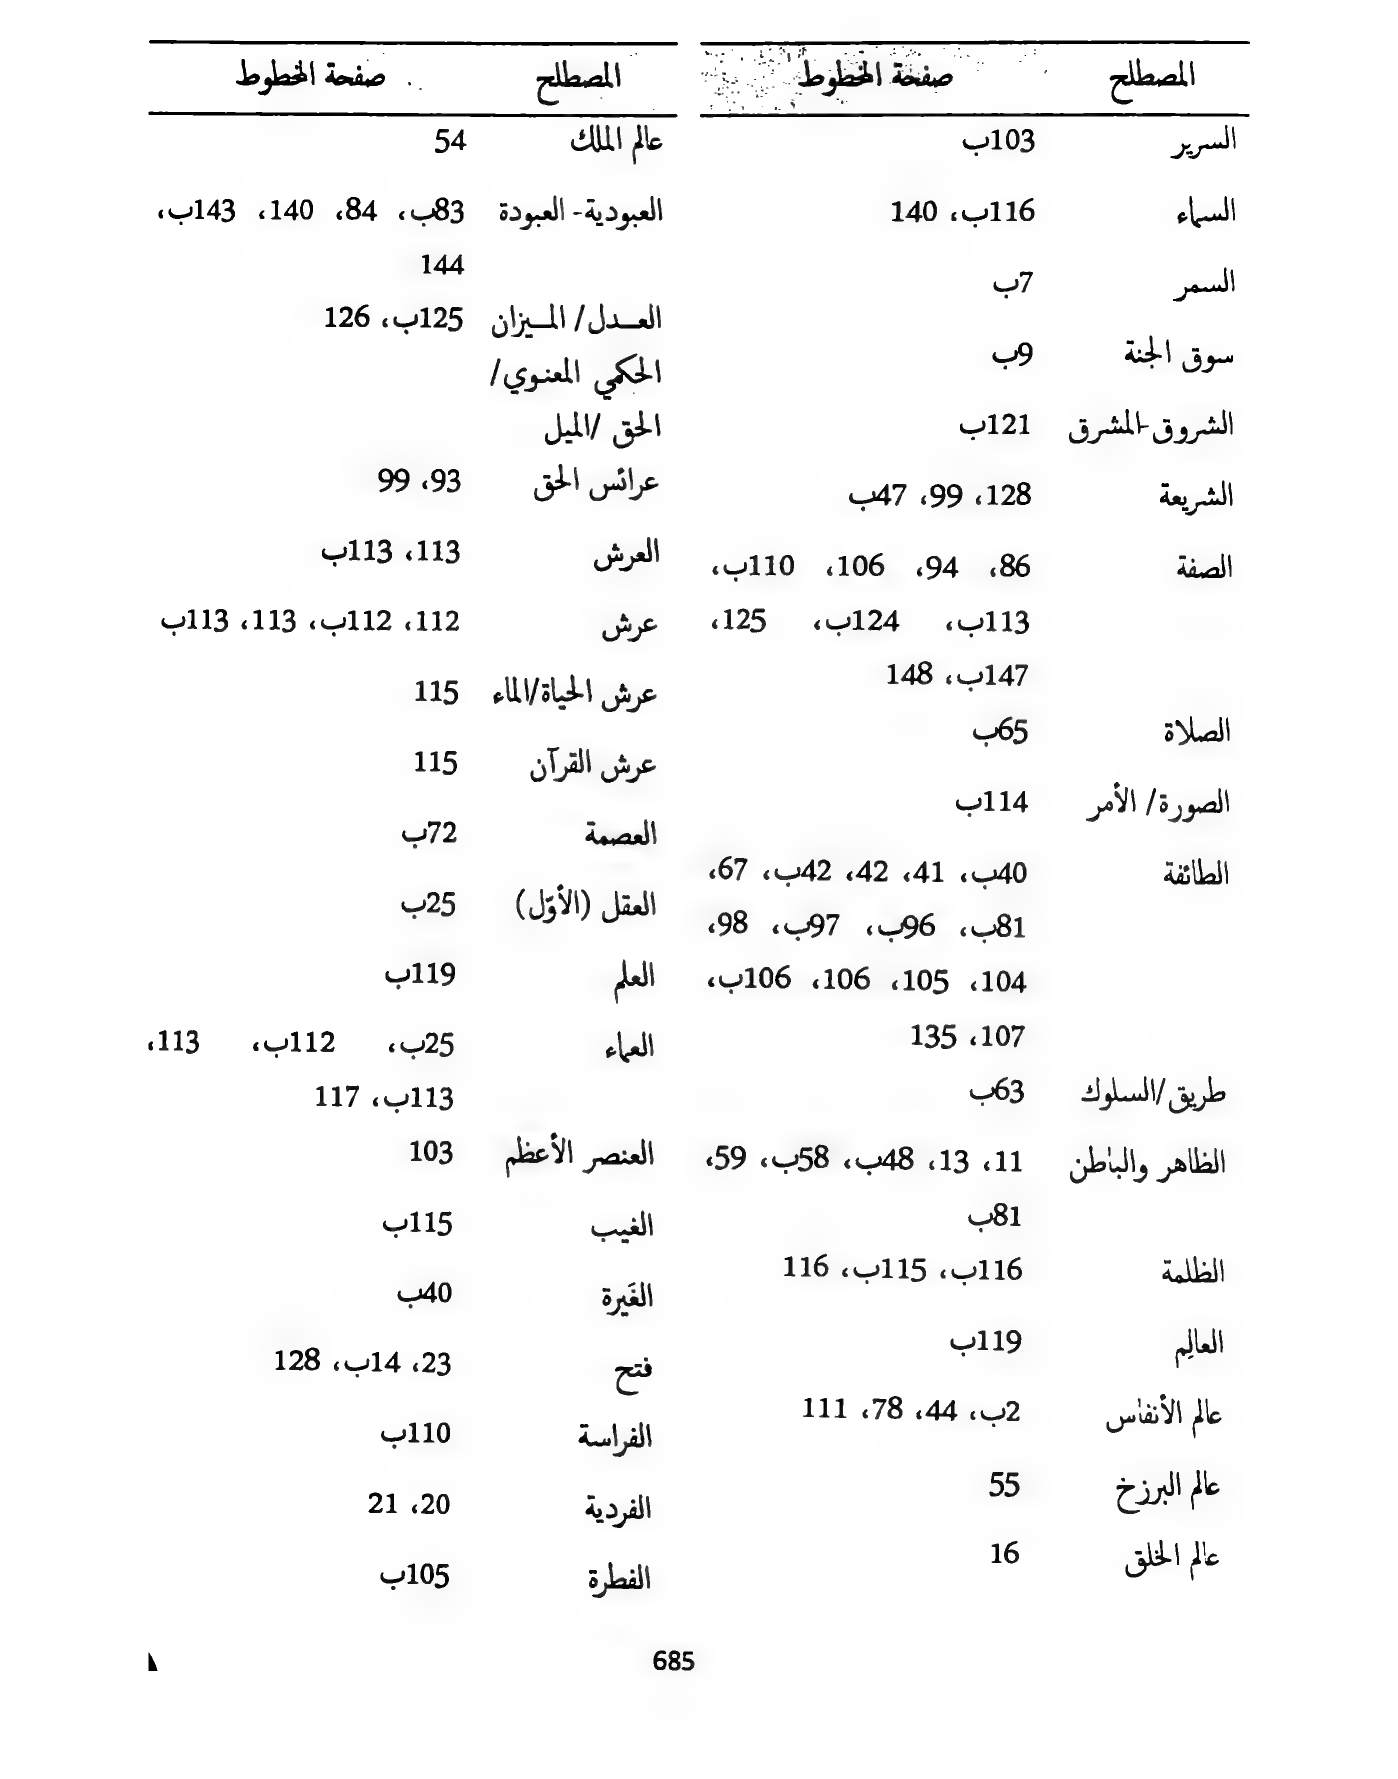 المصطلح صفحة المخطوط
السرير 103ب
السماء 116ب، 140
السمر 7ب
سوق الجنة 9ب
الشروق-المشرق 121ب
الشريعة 128، 99، 47ب
الصفة 86، 94، 106، 110ب،
113ب، 124ب، 125،
147ب، 148
الصلاة 65ب
الصورة/ الأمر 114ب
الطائفة 40ب، 41، 42، 42ب، 67،
81ب، 96ب، 97ب، 98،
104، 105، 106، 106ب،
107، 135
طريق/السلوك 63ب
الظاهر والباطن 11، 13، 48ب، 58ب، 59،
81ب
الظلمة 116ب، 115ب، 116
العالِم 119ب
عالم الأنفاس 2ب، 44، 78، 111
عالم البرزخ 55
عالم الخلق 16
المصطلح صفحة المخطوط
عالم الملك 54
العبودية- العبودة 83ب، 84، 140، 143ب،
144
العدل/ الميزان 125ب، 126
الحكمي المعنوي/
الحق /الميل
عرائس الحق 93، 99
العرش 113، 113ب
عرش 112، 112ب، 113، 113ب
عرش الحياة/الماء 115
عرش القرآن 115
العصمة 72ب
العقل (الأوّل) 25ب
العلم 119ب
العماء 25ب، 112ب، 113،
113ب، 117
العنصر الأعظم 103
الغيب 115ب
الغَيرة 40ب
فتح 23، 14ب، 128
الفراسة 110ب
الفردية 20، 21
الفطرة 105ب
685